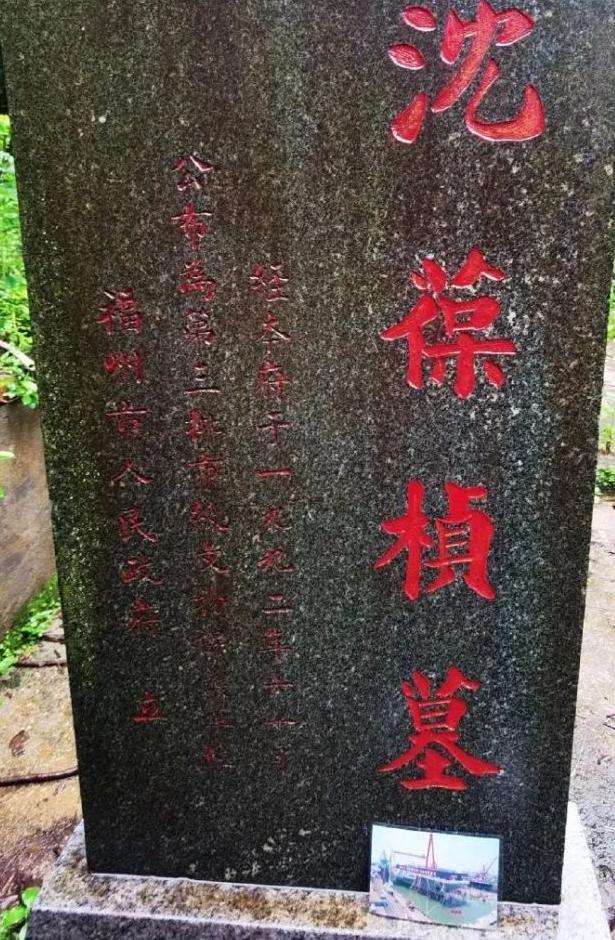 沈葆桢墓
经本府于一九九二年十一月
公布为第三批市级文物保护单位
福州市人民政府 立